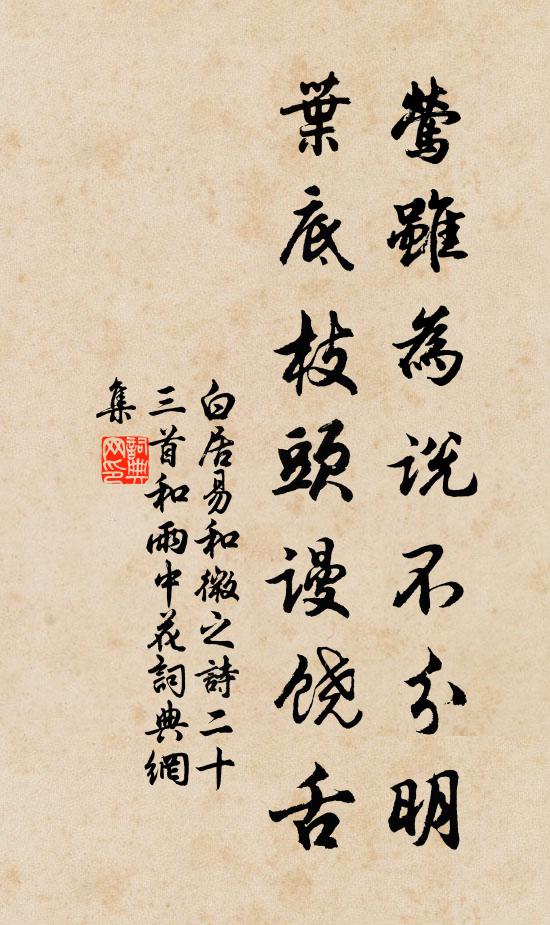 鶯雖為説不分明
葉底枝頭謾饒舌
白居易和微之詩二十
三首和雨中花詞典網
集
詞典
网印